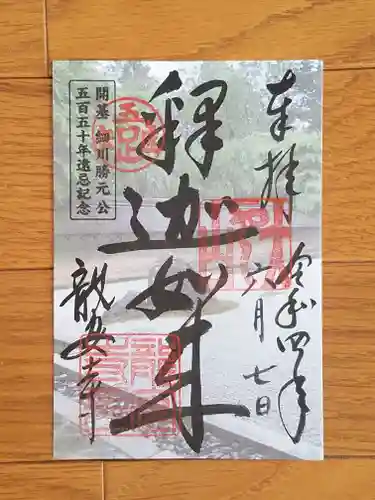 奉拝
令和四年
六月七日
釈迦如来
開基 細川勝元公
五百五十年遠忌記念
龍安寺